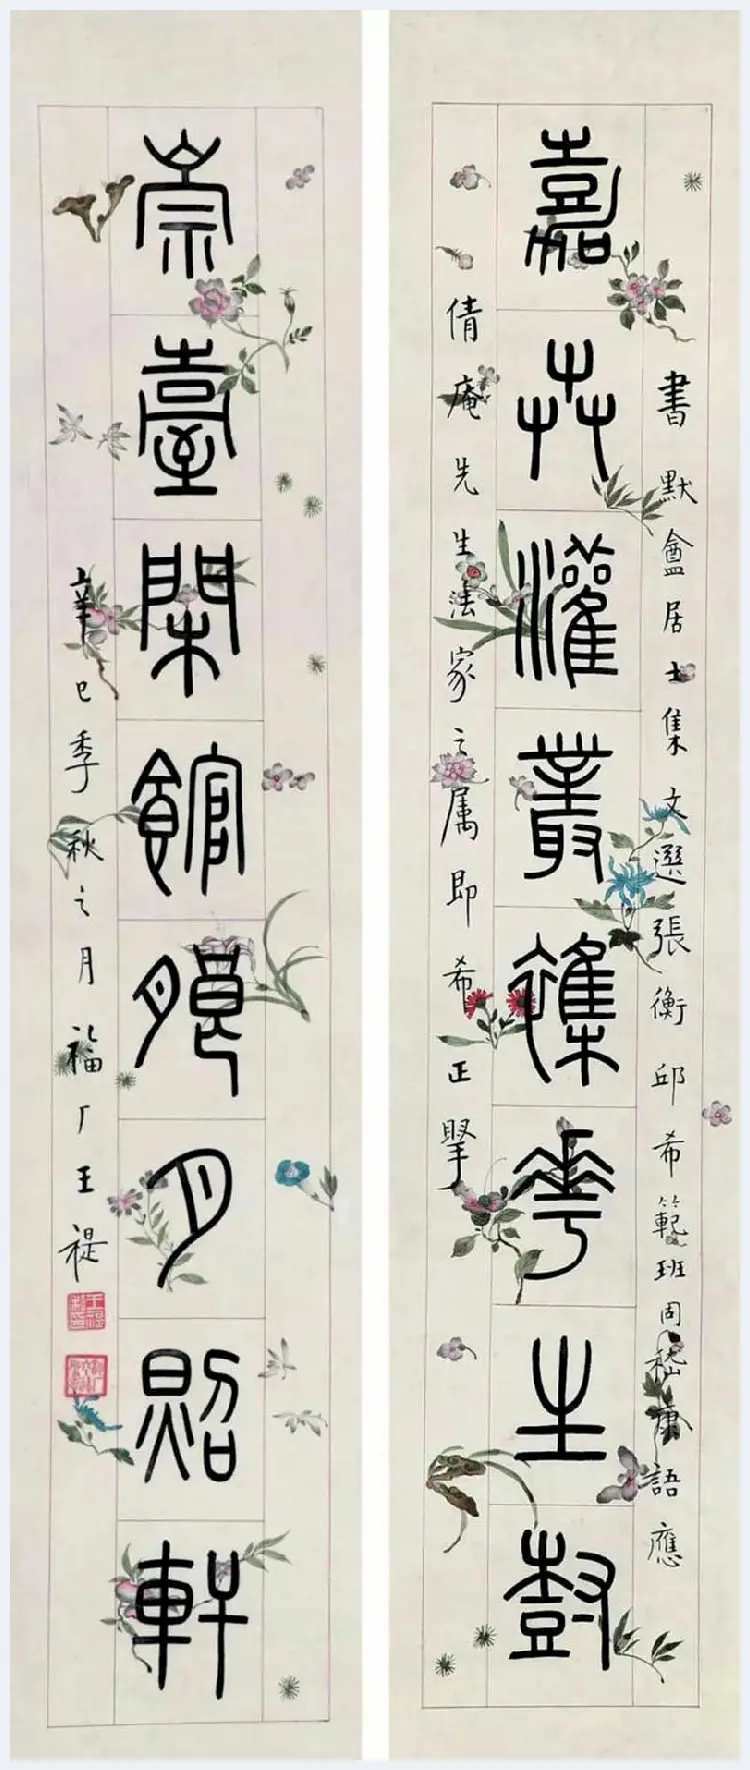 書默盦居士集文選張衡邱希範班固嵇康語應
嘉卉灌叢襍華生樹
倩庵先生法家之属即希正掔
崇臺閑館朖月照軒
辛巳季秋之月福厂王禔